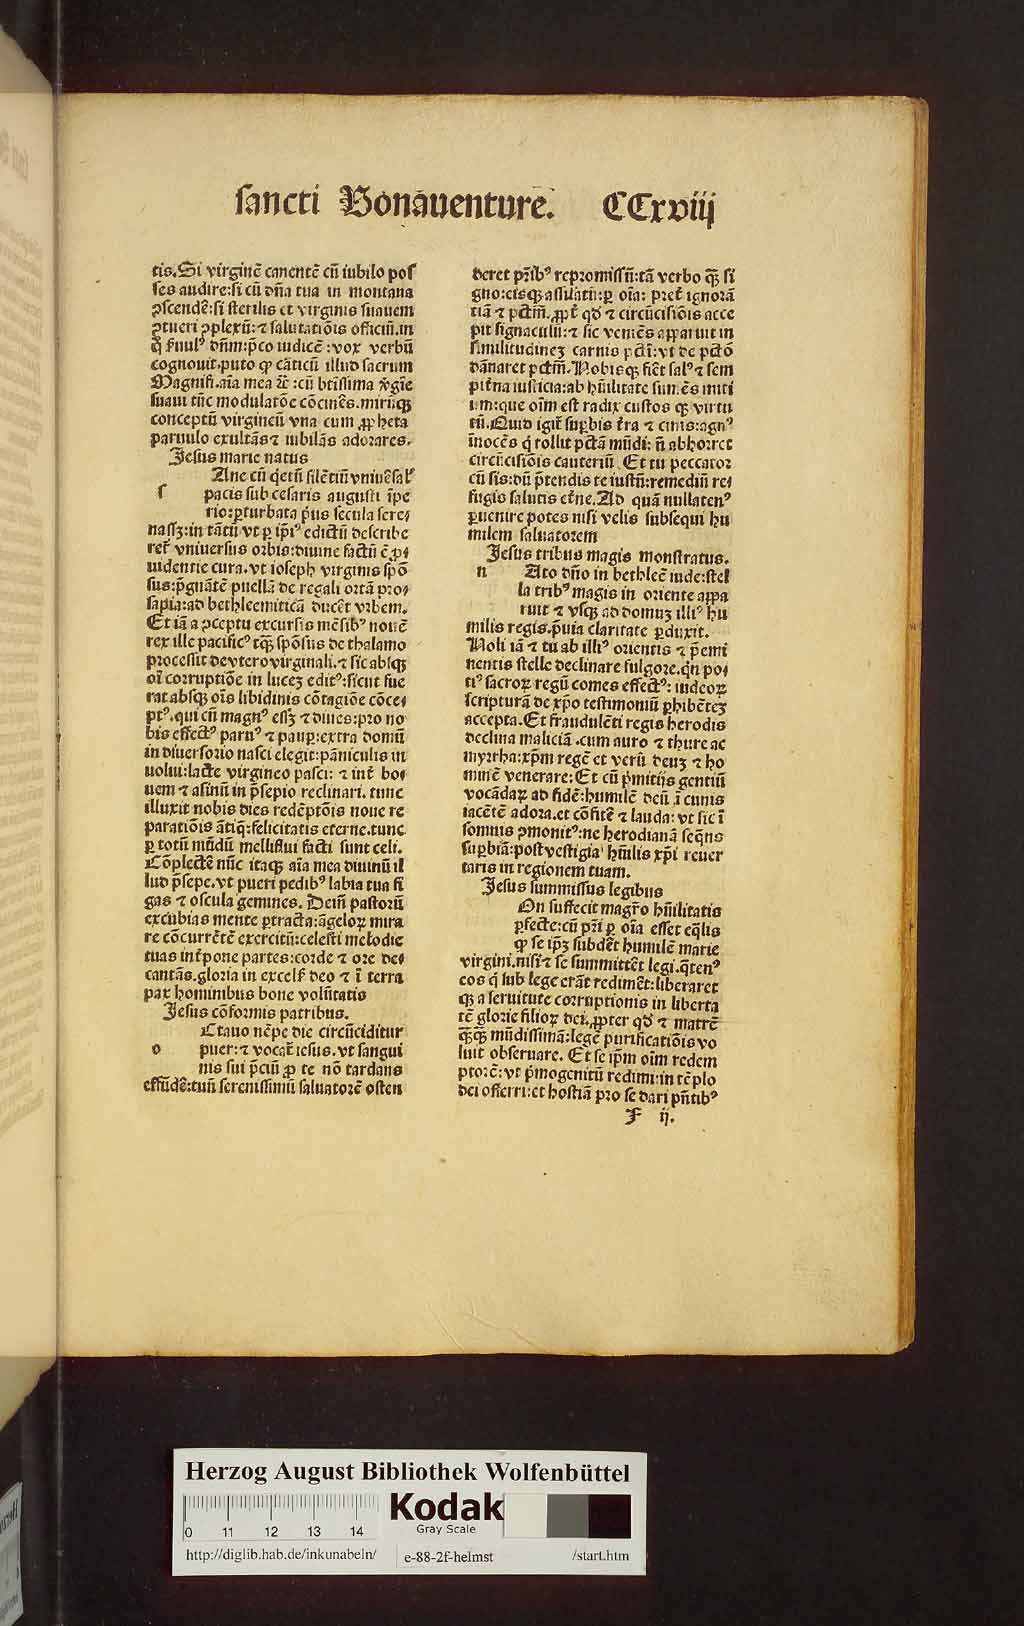 sancti Bonauenture. CCxviij
tis. Si virginē canentē cū iubilo pos
ses audire: si cū dña tua in montana
ꝯscendē: si sterilis et virginis suauem
ꝯtueri ꝯplexū: ⁊ salutatiōis officiū. in
q̄ ẜuulꝰ dñm: p̄co iudicē: vox verbū
cognouit. puto ꝙ cāticū illud sacrum
Magnifi. aīa mea ⁊c̄: cū btīssima v̄gīe
suaui tūc modulatōe cōcinēs. mirūqꝫ
conceptū virgineū vna cum ꝓpheta
paruulo exultās ⁊ iubilās adorares.
Jesus marie natus
Ane cū q̄etū silētiū vniuēsał
s pacis sub cesaris augusti īpe
rio: ꝑturbata p̄us secula sere⸗
nassꝫ: in tātū vt ꝑ ip̄iꝰ edictū describe
ret̄ vniuersus orbis: diuine factū ē ꝓ⸗
uidentie cura. vt ioseph virginis spō
sus: p̄gnātē puellā de regali ortā pro⸗
sapia: ad bethleemiticā ducēt vrbem.
Et iā a ꝯceptu excursis mēsibꝰ nouē
rex ille pacificꝰ tqꝫ spōsus de thalamo
processit de vtero virginali. ⁊ sic absqꝫ
oī corruptiōe in luceꝫ editꝰ: sicut fue
rat absqꝫ oīs libidinis cōtagiōe cōce⸗
ptꝰ. qui cū magnꝰ essꝫ ⁊ diues: pro no
bis effectꝰ paruꝰ ⁊ pauꝑ: extra domū
in diuersorio nasci elegit: pāniculis in
uolui: lacte virgineo pasci: ⁊ int̄ bo⸗
uem ⁊ asinū in p̄sepio reclinari. tunc
illuxit nobis dies redēptōis noue re
paratiōis ātiq̄: felicitatis eterne. tunc
ꝑ totū mūdū melliflui facti sunt celi.
Cōplectē nūc itaqꝫ aīa mea diuinū il
lud p̄sepe. vt pueri pedibꝰ labia tua fi
gas ⁊ oscula gemines. Deiñ pastorū
excubias mente ꝑtracta: āgeloꝝ mira
re cōcurrētē exercitū: celesti melodie
tuas int̄pone partes: corde ⁊ ore de⸗
cantās. gloria in excelẜ deo ⁊ ī terra
pax hominibus bone volūtatis
Jesus cōformis patribus.
Ctauo nēpe die circūciditur
o puer: ⁊ vocat̄ iesus. vt sangui
nis sui p̄ciū ꝓ te nō tardans
effūdē: tuū serenissimū saluatorē osten
deret pr̄ibꝰ repromissū: tā verbo qꝫ si
gno: eisqꝫ assilatū: ꝑ oīa: pret̄ ignorā
tiā ⁊ pctm̄. ꝓpt̄ qđ ⁊ circūcisiōis acce
pit signaculū: ⁊ sic veniēs apparuit in
similitudineꝫ carnis pctī: vt de pctō
dānaret pctm̄. Nobisqꝫ fiet salꝰ ⁊ sem
pit̄na iusticia: ab hūilitate sumēs initi
um: que oīm est radix custos qꝫ virtu
tū. Quid igit̄ suꝑbis t̄ra ⁊ cinis: agnꝰ
īnocēs q̄ tollit pctā mūdi: nō abhorret
circūcisiōis cauteriū. Et tu peccator
cū sis: dū p̄tendis te iustū: remediū re⸗
fugis salutis et̄ne. Ad quā nullatenꝰ
ꝑuenire potes nisi velis subsequi hu
milem saluatorem
Jesus tribus magis monstratus.
n Ato dño in bethleē iude: stel
la tribꝰ magis in oriente appa
ruit ⁊ vsqꝫ ad domuꝫ illiꝰ hu
milis regis. p̄uia claritate ꝑduxit.
Noli iā ⁊ tu ab illiꝰ orientis ⁊ p̄emi
nentis stelle declinare fulgore. q̄n po⸗
tiꝰ sacroꝝ regū comes effectꝰ: iudeoꝝ
scripturā de xp̄o testimoniū ꝑhibēteꝫ
accepta. Et fraudulēti regis herodis
declina maliciā. cum auro ⁊ thure ac
myrrha: xp̄m regē et verū deuꝫ ⁊ ho
minē venerare: Et cū p̄mitijs gentiū
vocādaꝝ ad fidē: humilē deū ī cunis
iacētē adora. et cōfitē ⁊ lauda: vt sic ī
somnis ꝯmonitꝰ: ne herodianā seq̄ns
suꝑbiā: post vestigia hūilis xp̄i reuer
taris in regionem tuam.
Jesus summissus legibus
On suffecit magr̄o hūilitatis
ꝑfecte: cū pr̄i ꝑ oīa esset eq̄lis
ꝙ se ip̄ꝫ subdēt humilē marie
virgini. nisi ⁊ se summittēt legi. q̄tenꝰ
eos q̄ sub lege erāt redimēt: liberaret
qꝫ a seruitute corruptionis in liberta
tē glorie filioꝝ dei. ꝓpter qđ ⁊ matrē
qꝫqꝫ mūdissimā: legē purificatiōis vo
luit obseruare. Et se ip̄m oīm redem
ptorē: vt p̄mogenitū redimi: in tēplo
dei offerri: et hostiā pro se dari p̄ntibꝰ
F ij.
Herzog August Bibliothek Wolfenbüttel
0 11 12 13 14
Kodak
Gray Scale
http://diglib.hab.de/inkunabeln/ e-88-2f-helmst /start.htm